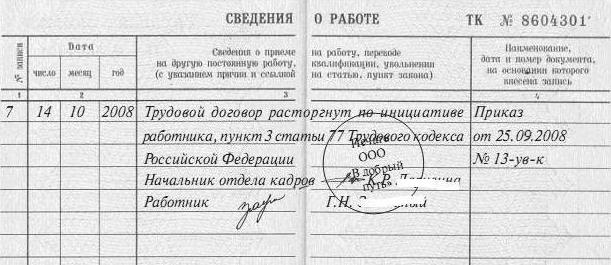 СВЕДЕНИЯ О РАБОТЕ ТК № 8604301
№ записи
Дата
Сведения о приеме на работу, переводе
на другую постоянную работу, квалификации, увольнении
(с указанием причин и ссылкой на статью, пункт закона)
Наименование,
дата и номер документа,
на основании которого
внесена запись
число месяц год
1 2 3 4
7 14 10 2008 Трудовой договор расторгнут по инициативе Приказ
работника, пункт 3 статьи 77 Трудового кодекса от 25.09.2008
Российской Федерации № 13-ув-к
Начальник отдела кадров К.В.
Работник Г.Н.
Печать
ООО
"В добрый
путь"